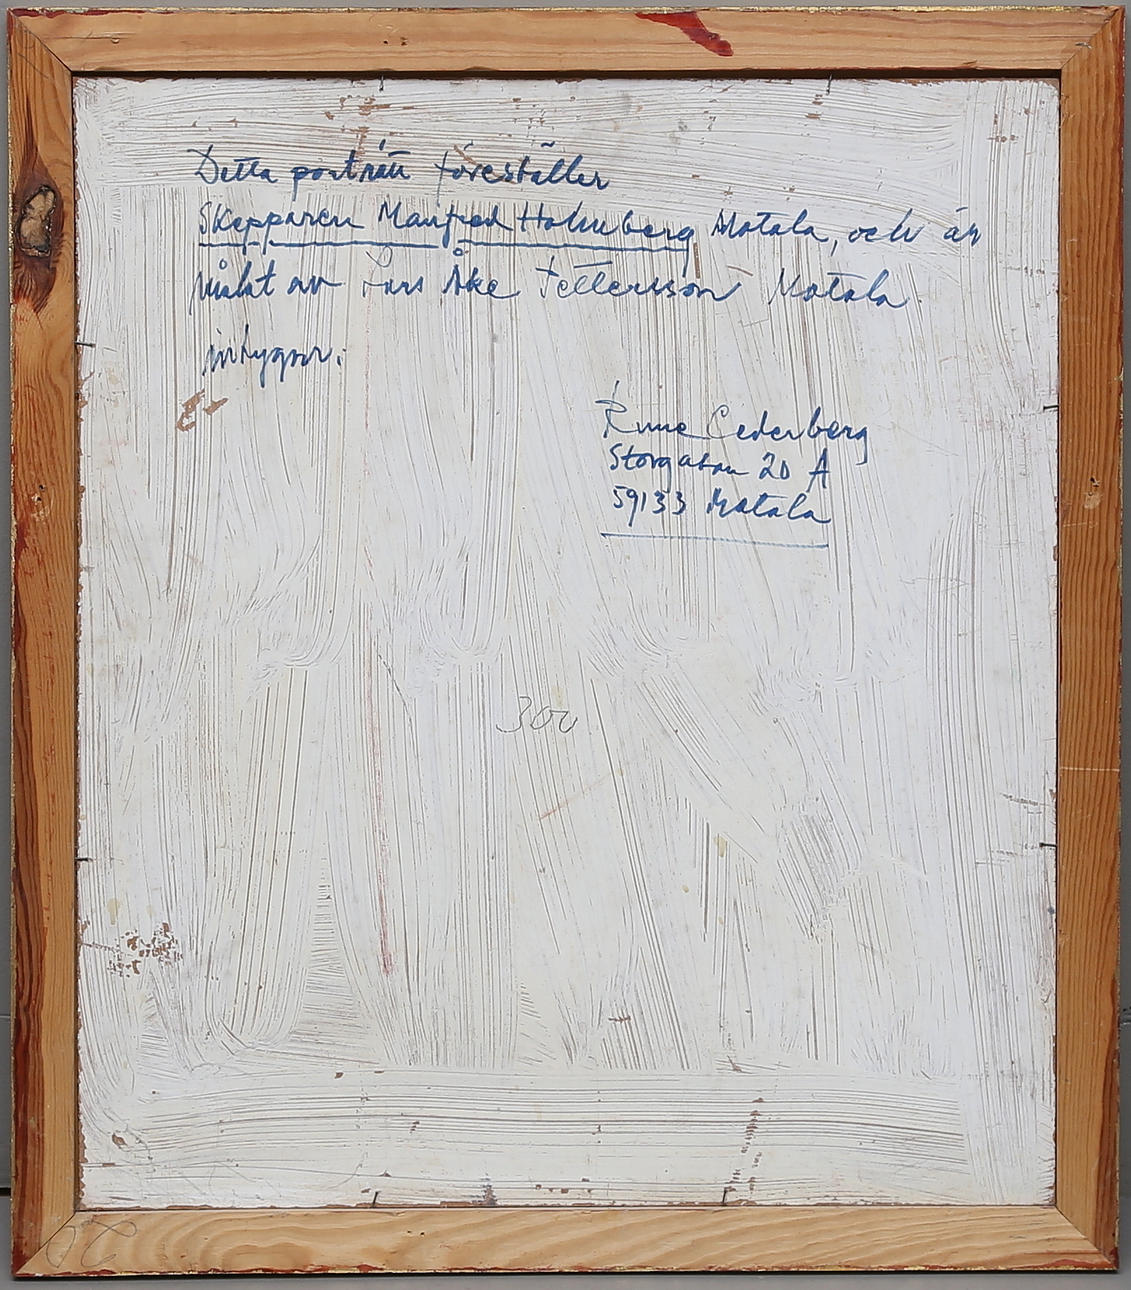 Detta porträtt föreställer
Skepparen Manfred Holmberg Motala, och är
målat av Lars Åke Pettersson Motala
intygar.
Rune Cederberg
Storgatan 20 A
59133 Motala
300
20